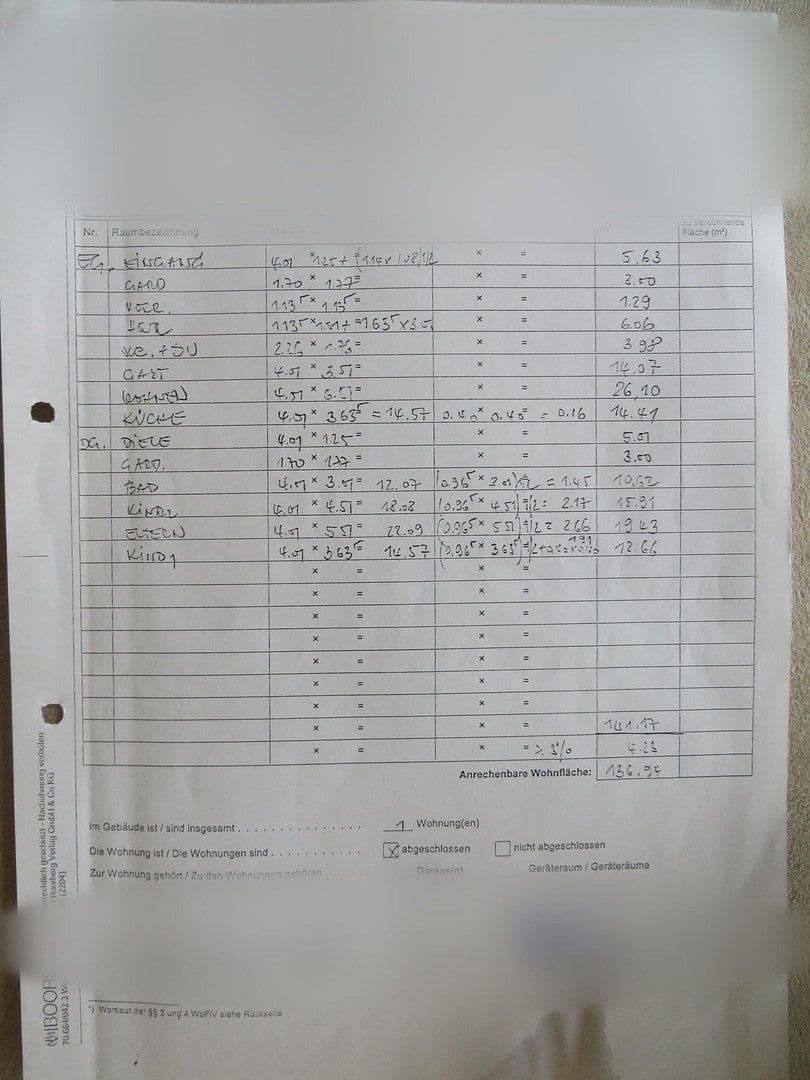 Nr. Raumbezeichnung zu berechnende Fläche (m²)
EG. EINGANG 4.01 × 1.25 + (1.14 × 1.08)1/2 × = 5,63
GARD 1.70 × 1.77 = × = 3.00
1.13⁵ × 1.13⁵ = × = 1.29
1.13⁵ × + = 1.63⁵ × 3.51 × = 6.06
2.26 × 1.76 = × = 3.98
GAST 4.01 × 3.51 = × = 14.07
WOHNEN 4.01 × 6.51 = × = 26,10
KÜCHE 4.01 × 3.63⁵ = 14.57 0.40 × 0.40 = 0.16 14.41
DG. DIELE 4.01 × 1.25 = × = 5.01
GARD. 1.70 × 1.77 = × = 3.00
BAD 4.01 × 3.01 = 12.07 (0.96⁵ × 3.01)1/2 = 1.45 10,62
KIND2 4.01 × 4.51 = 18.08 (0.96⁵ × 4.51)1/2 = 2.17 15.91
ELTERN 4.01 × 5.51 = 22.09 (0.96⁵ × 5.51)1/2 = 2.66 19.43
KIND1 4.01 × 3.63⁵ = 14.57 (0.96⁵ × 3.63⁵)1/2 + 1.91 12.66
× = × =
× = × =
× = × =
× = × =
× = × =
× = × =
× = × =
× = × = 141.17
× = × = ⁒ 3% 4.23
Anrechenbare Wohnfläche: 136.94
Im Gebäude ist / sind insgesamt . . . . . . . . . . . . . . . 1 Wohnung(en)
Die Wohnung ist / Die Wohnungen sind . . . . . . . . . . . X abgeschlossen nicht abgeschlossen
Zur Wohnung gehört / Zu den Wohnungen gehören Garage(n) Geräteraum / Geräteräume
*) Wortlaut der §§ 3 und 4 WoFlV siehe Rückseite
rechtlich geschützt - Nachahmung verboten
Boorberg Verlag GmbH & Co KG
(2204)
BOOR
70.664/042.3